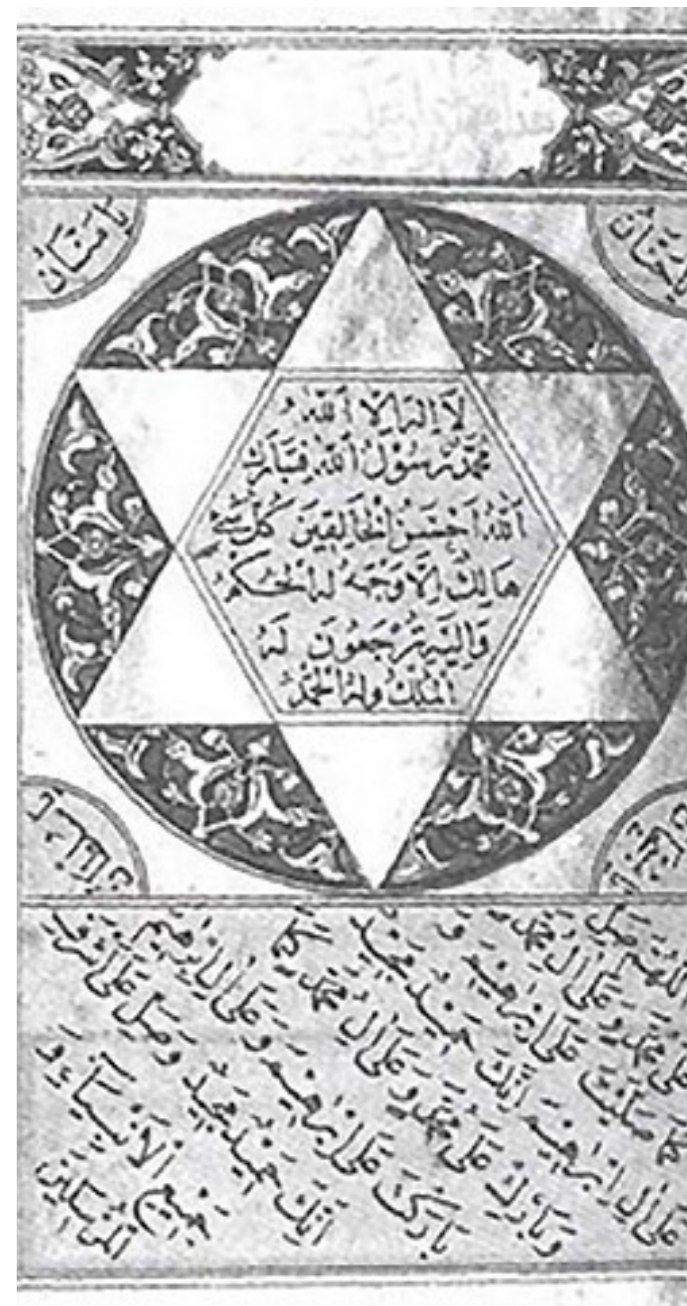 يَا حَنَّانُ
يَا مَنَّانُ
لَا اِلٰهَ اِلَّا اَللّٰهُ
مُحَمَّدٌ رَسُوْلُ اَللّٰهِ فَتَبَارَكَ
اَللّٰهُ اَحْسَنُ الْخَالِقِينَ كُلُّ شَيْءٍ
هَالِكٌ اِلَّا وَجْهَهُ لَهُ الْحُكْمُ
وَاِلَيْهِ تُرْجَعُونَ لَهُ
الْمُلْكُ وَلَهُ الْحَمْدُ
اَللّٰهُمَّ صَلِّ
عَلٰى مُحَمَّدٍ وَعَلٰى اٰلِ مُحَمَّدٍ
كَمَا صَلَّيْتَ عَلٰى اِبْرَاهِيمَ وَ
عَلٰى اٰلِ اِبْرَاهِيمَ اِنَّكَ حَمِيْدٌ مَجِيْدٌ
وَبَارِكْ عَلٰى مُحَمَّدٍ وَعَلٰى اٰلِ مُحَمَّدٍ كَمَا
بَارَكْتَ عَلٰى اِبْرَاهِيمَ وَعَلٰى اٰلِ اِبْرَاهِيمَ
اِنَّكَ حَمِيْدٌ مَجِيْدٌ وَصَلِّ عَلٰى اَشْرَفِ
جَمِيْعِ الْاَنْبِيَآءِ وَ
الْمُرْسَلِيْنَ